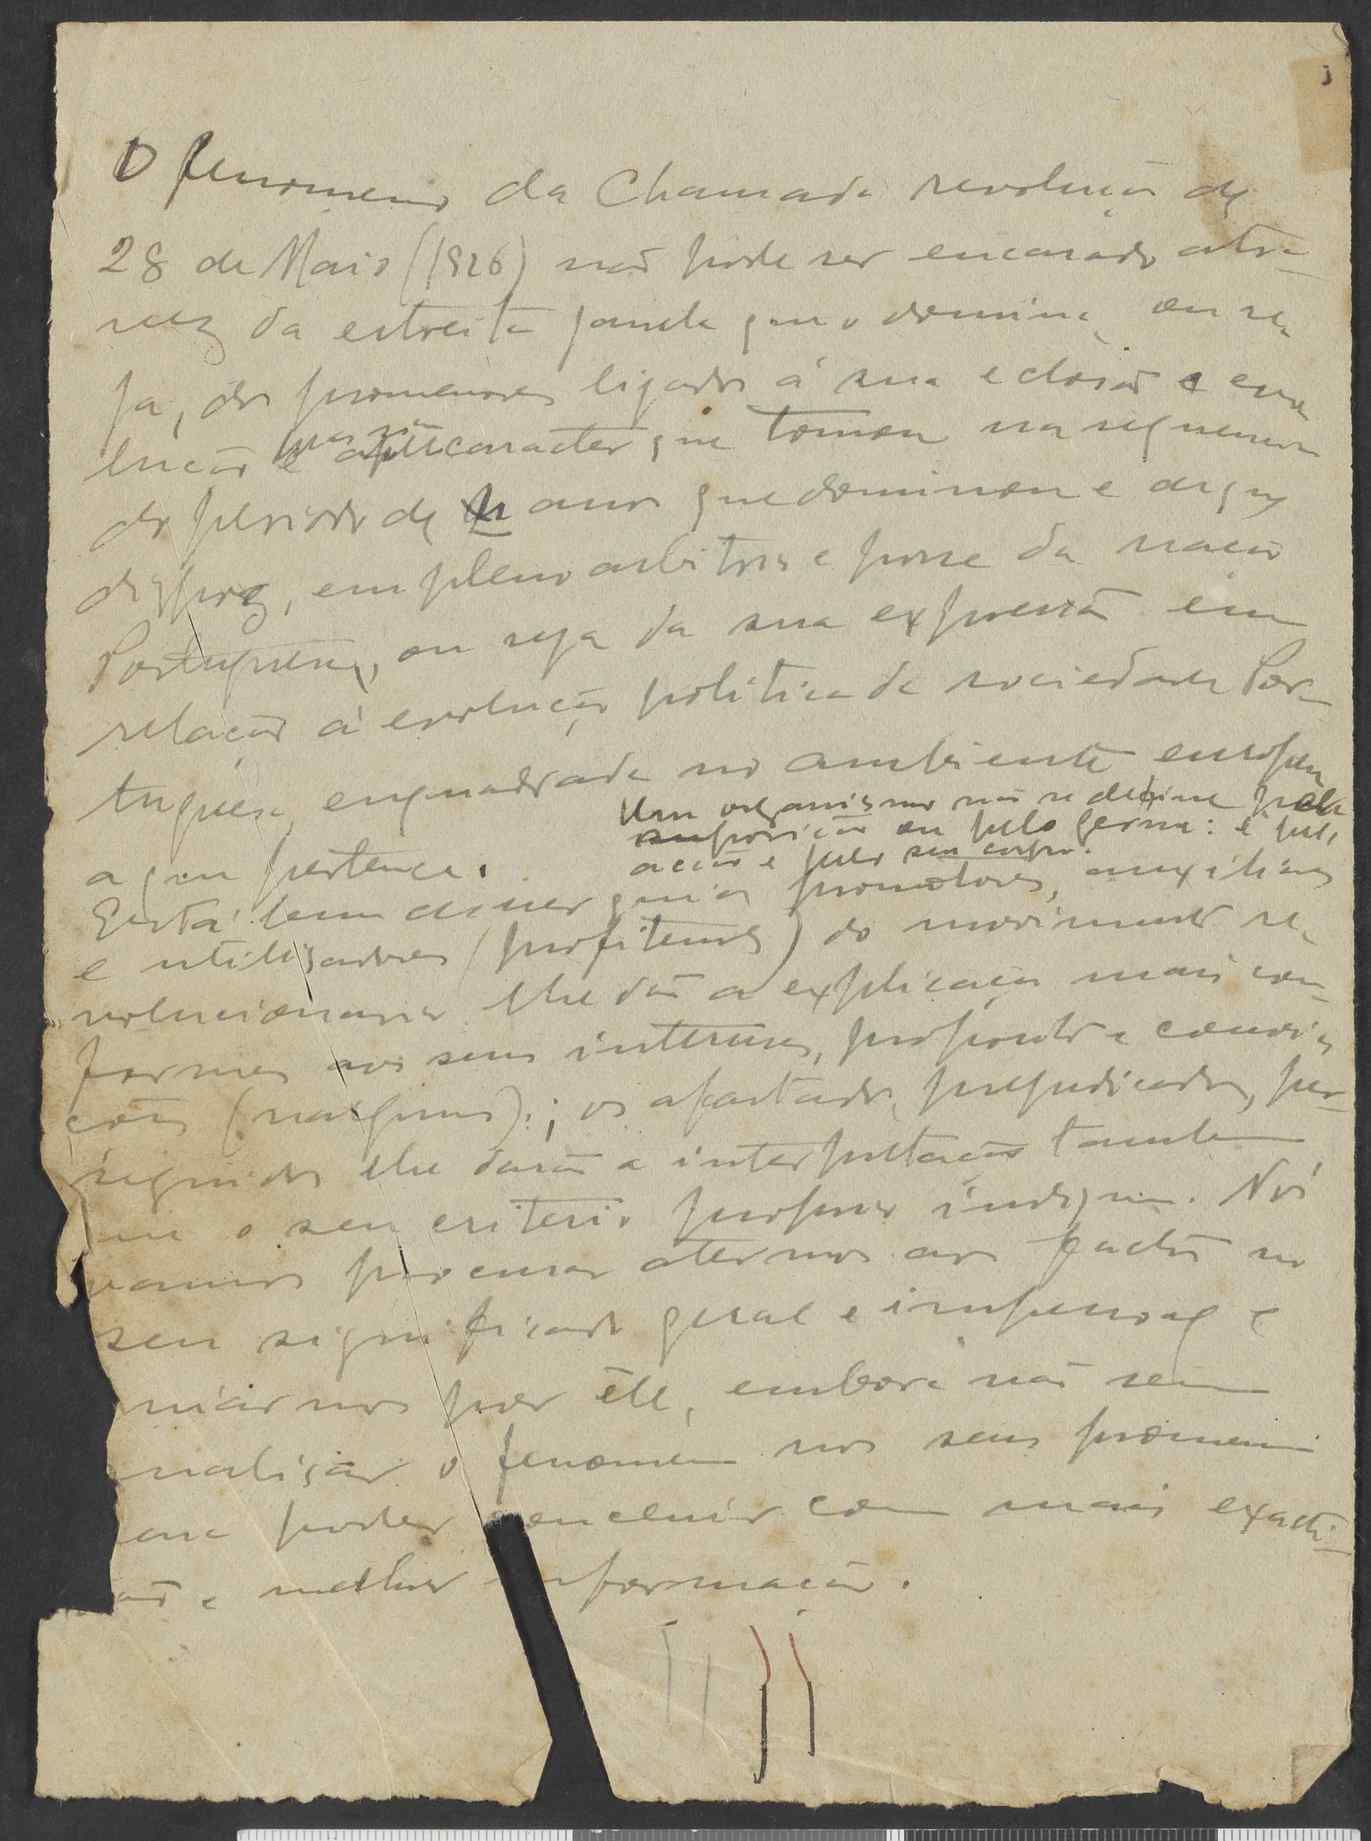 O fenomeno da Chamada revolução de
28 de Maio (1926) não pode ser encarado atra-
vez da estreita janela que o domina, ou se-
ja, dos promenores ligados á sua eclosão e evo
lução e caracter que tomou na sequencia
do periodo de anos que dominou e de que
dispoz, em pleno arbitrio e posse da nação
Portuguesa, ou seja da sua expressão em
relação á evolução politica da sociedade Por-
tuguesa enquadrada no ambiente europeu
Um organismo não se define pela
suposição ou pelo germe: é pela
acção e pelo seu corpo.
a que pertence.
Está bem de ver que os promotores, auxiliares
e utilisadores (profiteurs) do movimento re-
volucionario lhe dão a explicação mais con-
forme aos seus interesses, proposito e convi-
cões; os afastados, prejudicados, per-
seguidos lhe darão a interpretação tambem
o seu criterio proprio indigna. Nós
vamos procurar atermos aos factos no
seu significado geral e impessoal e
guiar nos por êle, embora não sem
analisar o fenomeno nos seus promeno
para poder concluir com mais exacti-
dão e melhor informação.